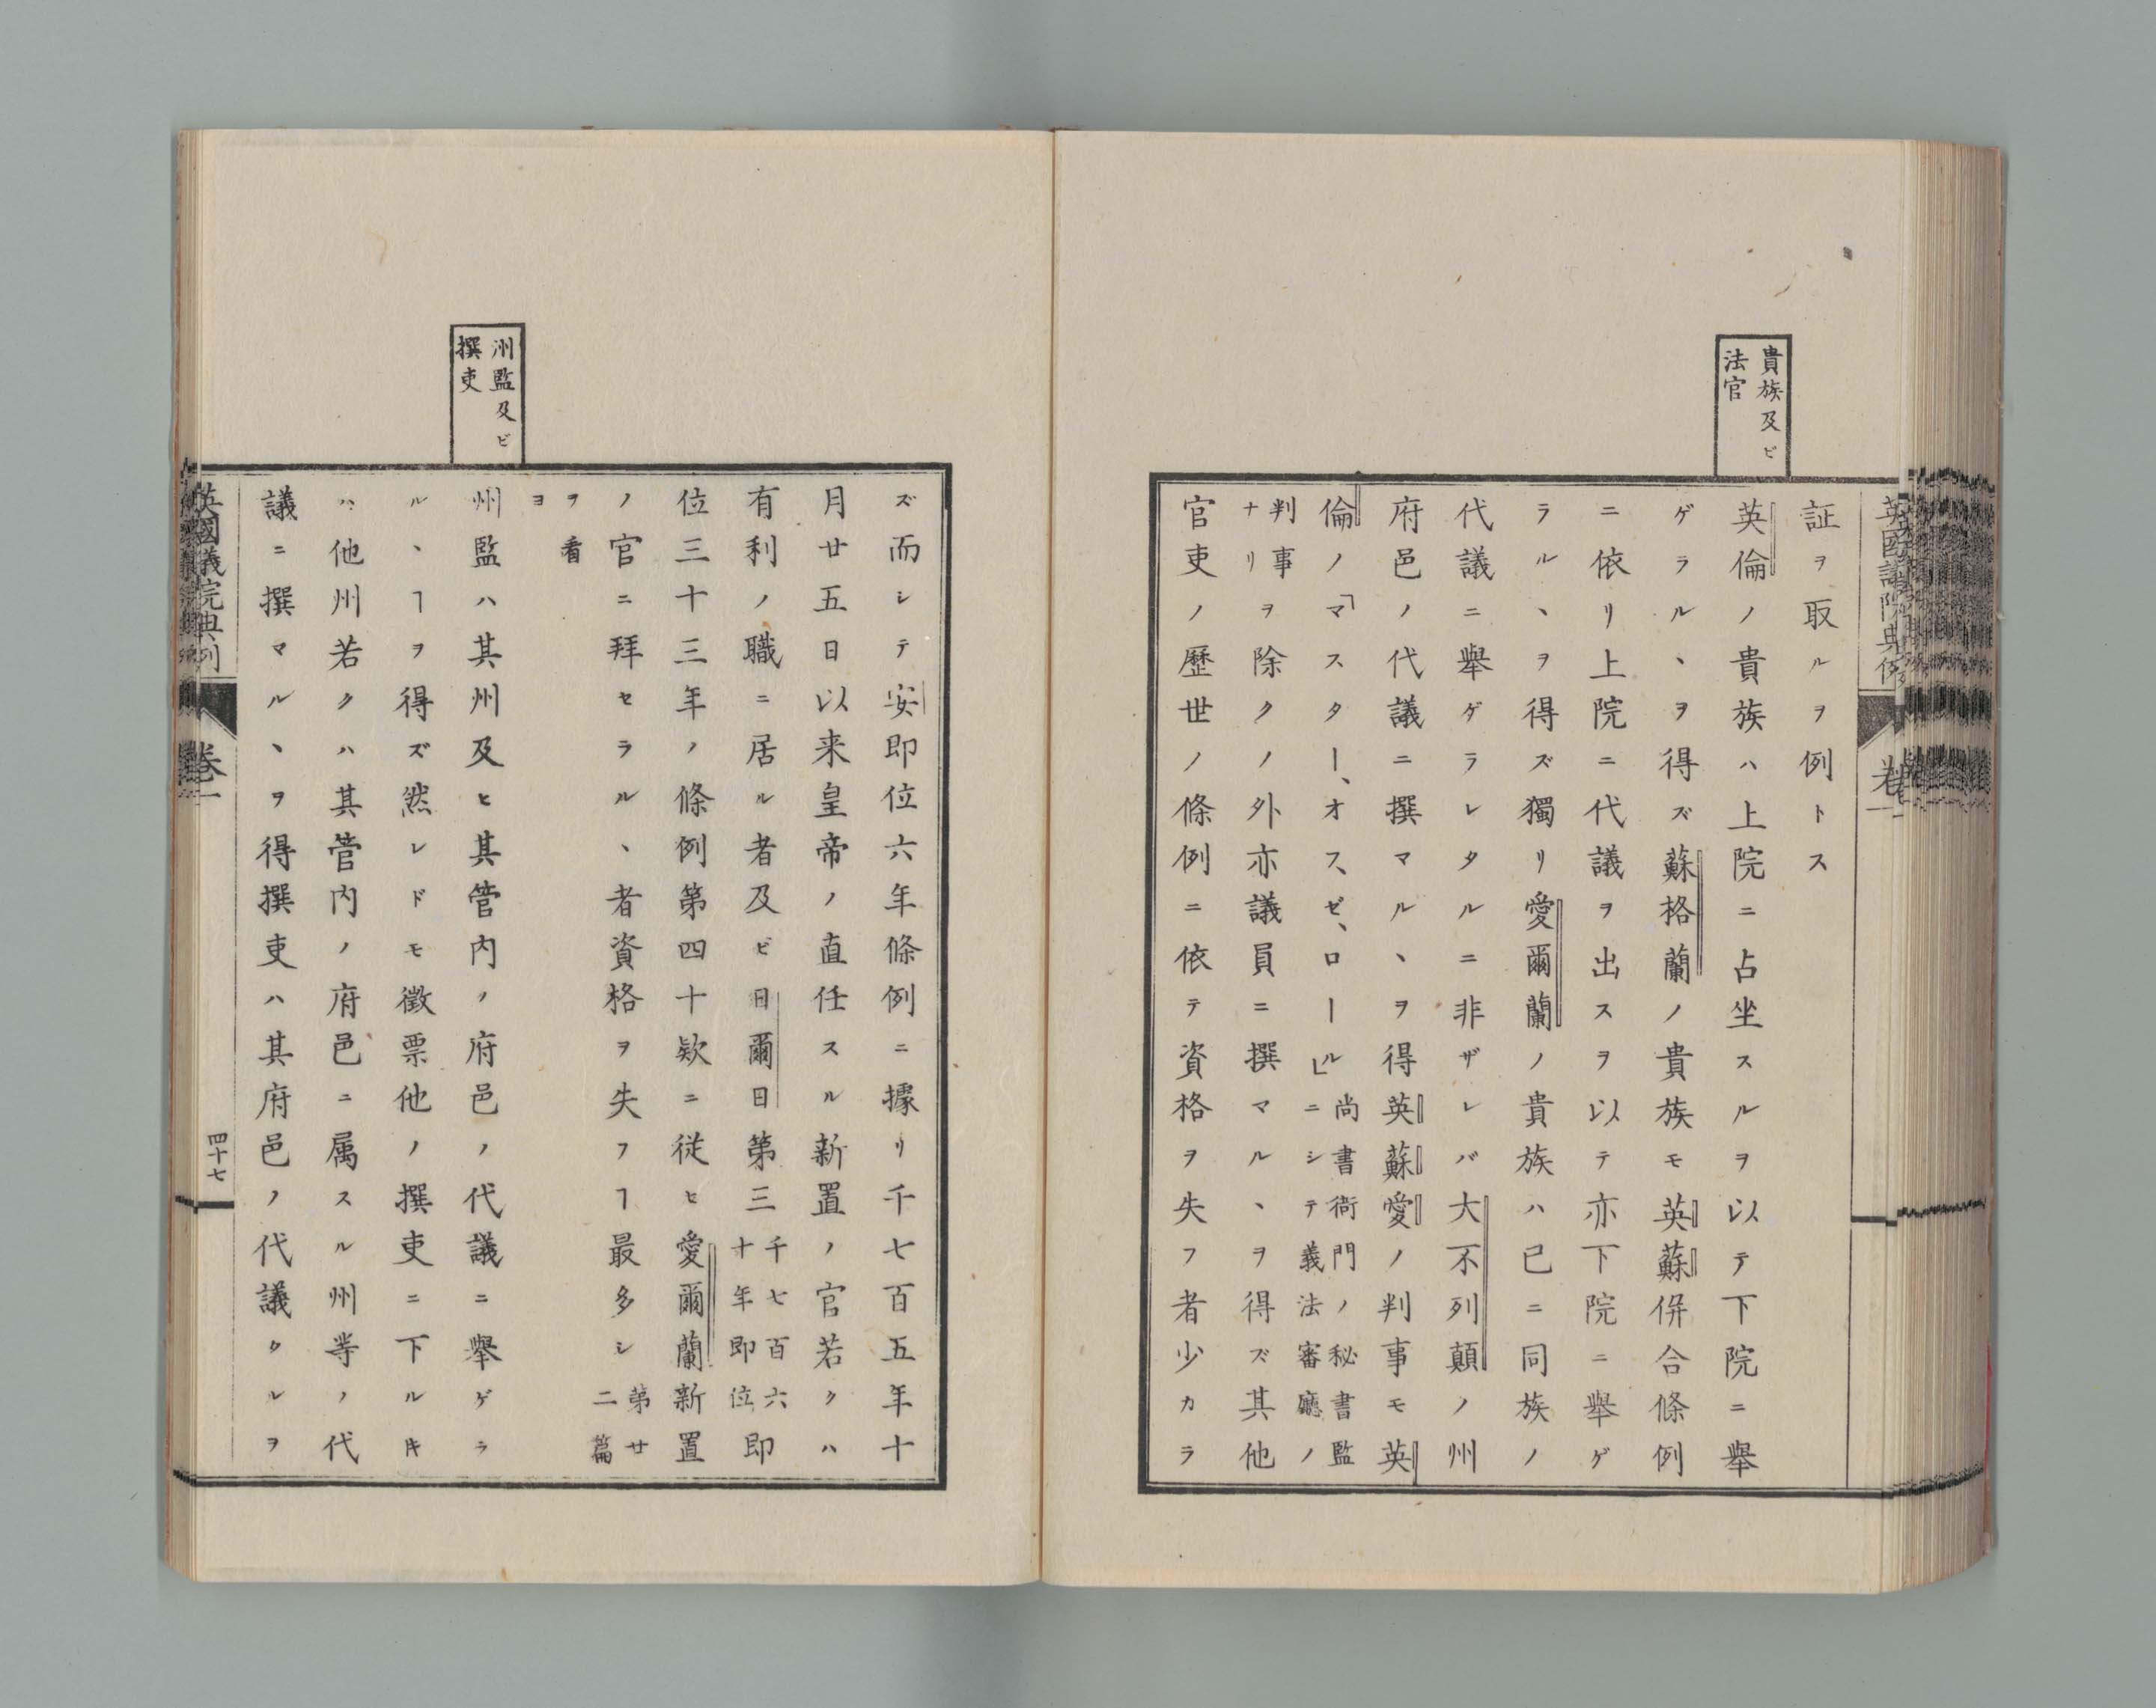 貴族及ビ
法官
証ヲ取ルヲ例トス
英倫ノ貴族ハ上院ニ占坐スルヲ以テ下院ニ舉
ゲラルヽヲ得ズ蘇格蘭ノ貴族モ英蘇併合條例
ニ依リ上院ニ代議ヲ出スヲ以テ亦下院ニ舉ゲ
ラルヽヲ得ズ獨リ愛爾蘭ノ貴族ハ已ニ同族ノ
代議ニ舉ゲラレタルニ非ザレバ大不列顛ノ州
府邑ノ代議ニ撰マルヽヲ得英蘇愛ノ判事モ英
倫ノ「マスター、オス、ゼ、ロール」尚書衙門ノ秘書監ニシテ義法審廳ノ
判事ナリヲ除クノ外亦議員ニ撰マルヽヲ得ズ其他
官吏ノ歴世ノ條例ニ依テ資格ヲ失フ者少カラ
英國議院典例 卷一
洲監及ビ
撰吏
ズ而シテ安即位六年條例ニ據リ千七百五年十
月廿五日以来皇帝ノ直任スル新置ノ官若クハ
有利ノ職ニ居ル者及ビ日爾日第三千七百六十年即位即
位三十三年ノ條例第四十欵ニ従ヒ愛爾蘭新置
ノ官ニ拜セラルヽ者資格ヲ失フヿ最多シ第廿二篇
ヲ看
ヨ
州監ハ其州及ヒ其管内ノ府邑ノ代議ニ舉ゲラ
ルヽヿヲ得ズ然レドモ徴票他ノ撰吏ニ下ルキ
ハ他州若クハ其管内ノ府邑ニ属スル州等ノ代
議ニ撰マルヽヲ得撰吏ハ其府邑ノ代議タルヲ
英國議院典例 卷一 四十七